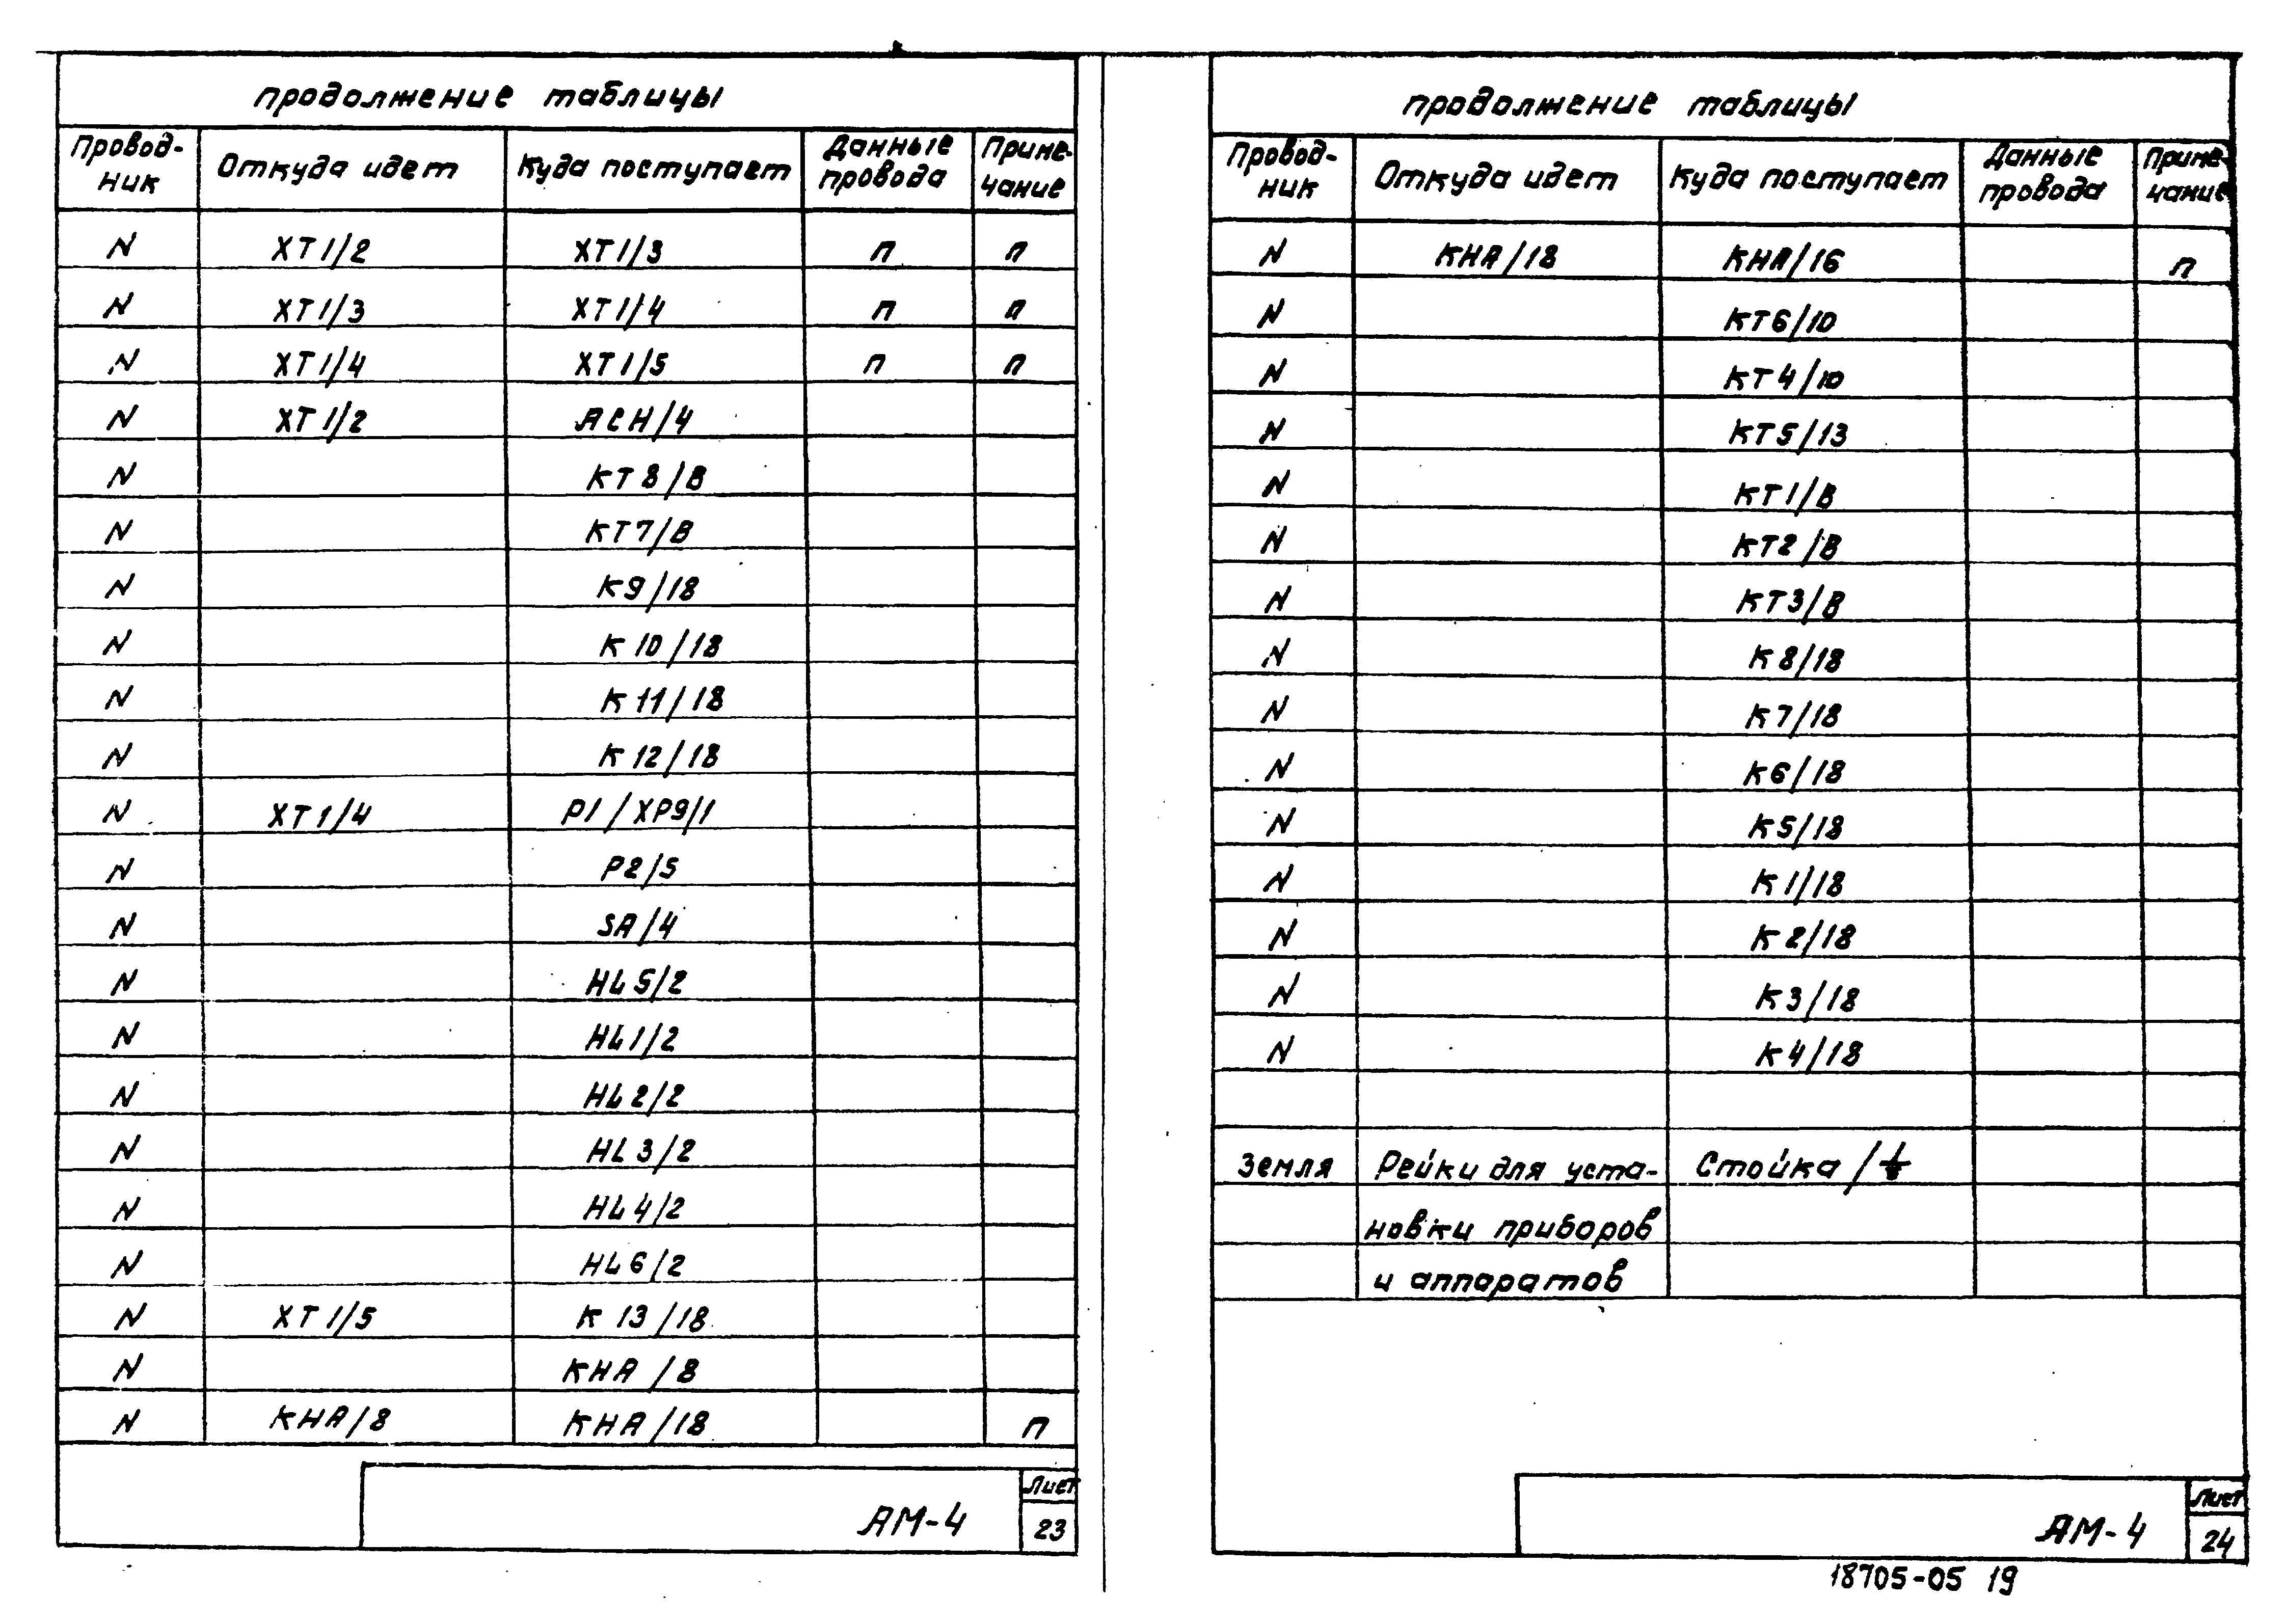 продолжение таблицы
Провод-
ник Откуда идет Куда поступает Данные провода Приме-
чание
N ХТ1/2 ХТ1/3 п п
N ХТ1/3 ХТ1/4 п п
N ХТ1/4 ХТ1/5 п п
N ХТ1/2 АСН/4
N КТ8/В
N КТ7/В
N К9/18
N К10/18
N К11/18
N К12/18
N ХТ1/4 Р1/ХР9/1
N Р2/5
N SA/4
N HL5/2
N HL1/2
N HL2/2
N HL3/2
N HL4/2
N HL6/2
N ХТ1/5 К13/18
N КНА/8
N КНА/8 КНА/18 п
АМ-4
Лист
23
продолжение таблицы
Провод-
ник Откуда идет Куда поступает Данные провода Приме-
чание
N КНА/18 КНА/16 п
N КТ6/10
N КТ4/10
N КТ5/13
N КТ1/В
N КТ2/В
N КТ3/В
N К8/18
N К7/18
N К6/18
N К5/18
N К1/18
N К2/18
N К3/18
N К4/18
Земля Рейки для уста- Стойка/⏚
новки приборов
и аппаратов
АМ-4
Лист
24
18705-05 19